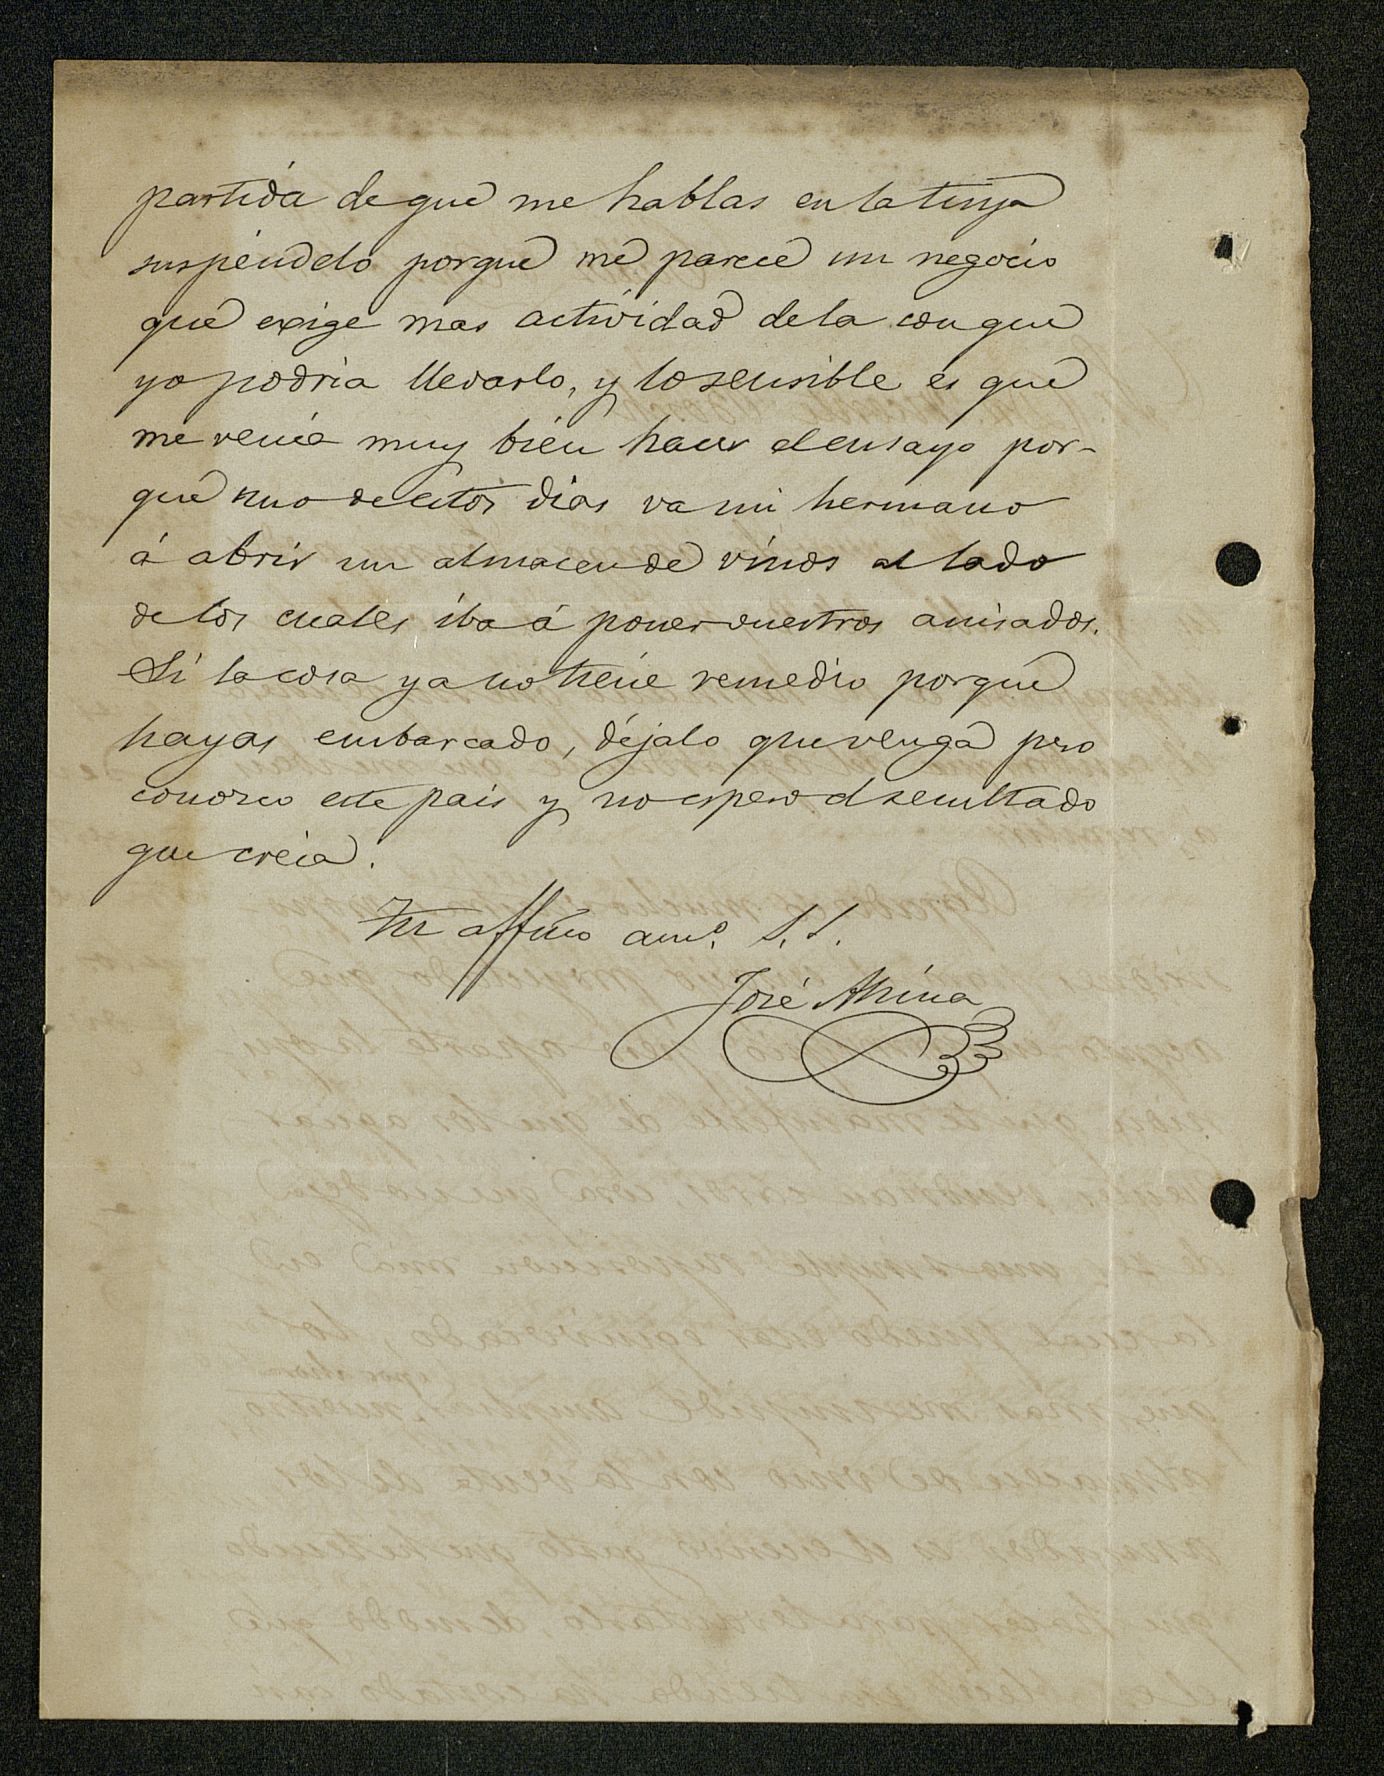 partida de que me hablas en la tuya
suspéndelo porque me parece un negocio
que exige mas actividad de la con que
yo podria llevarlo, y lo sensible es que
me venia muy bien hacer el ensayo por-
que uno de estos dias va mi hermano
á abrir un almacen de vinos al lado
de los cuales iba á poner vuestros anisados.
Si la cosa ya no tiene remedio porque
hayas embarcado, déjalo que venga pero
conozco este pais y no espero el resultado
que creia.
Tu affmo amo. S. S.
José Mina